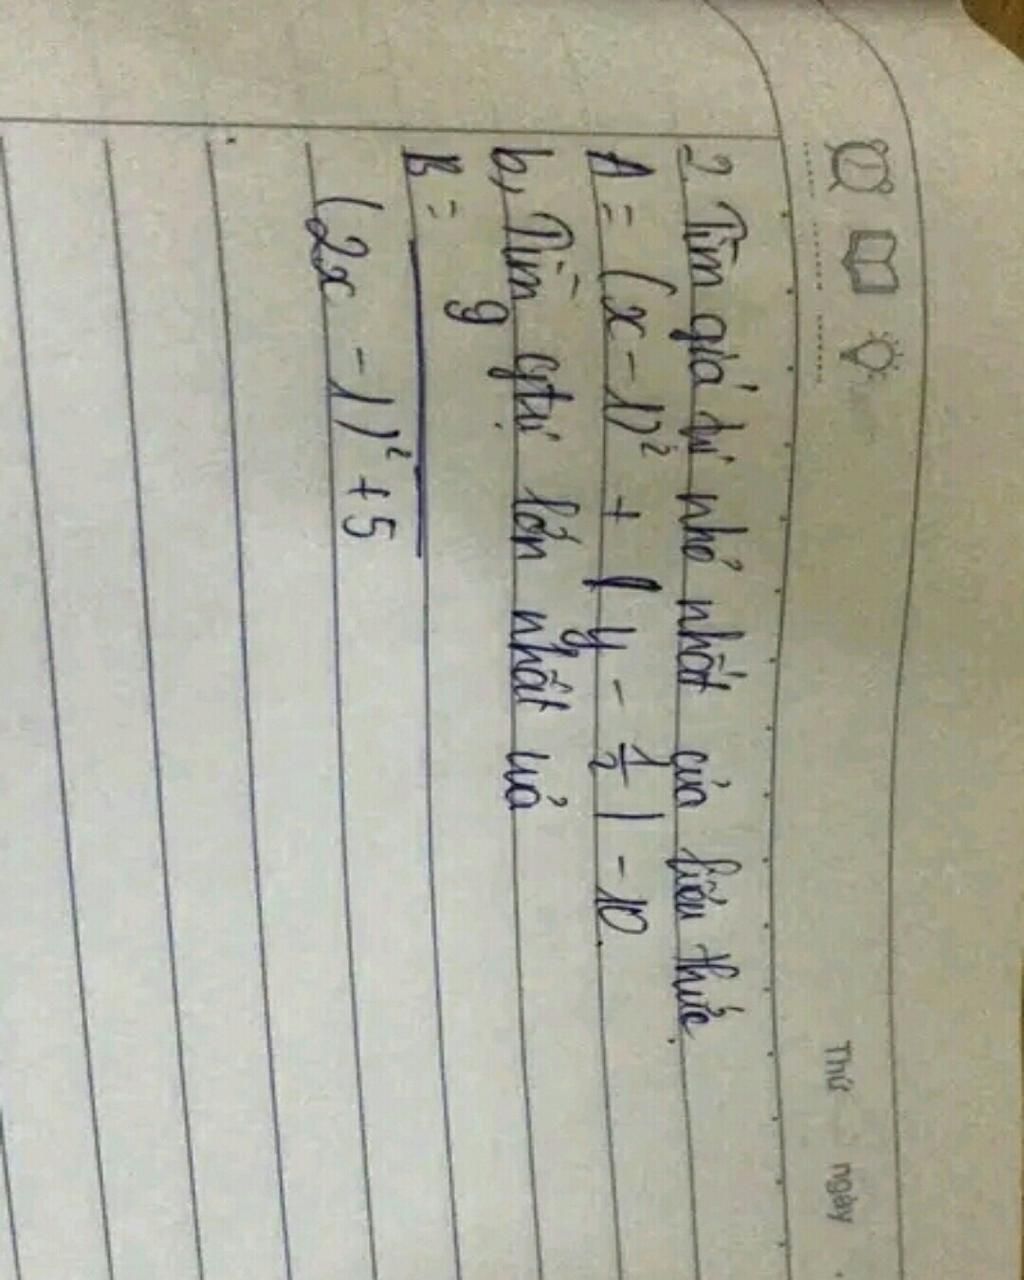 Thứ ngày
2. Tìm giá trị nhỏ nhất của biểu thức.
A = (x - 1)² + | y - 1/2 | - 10.
b, Tìm gtrị lớn nhất của
B = 9
(2x - 1)² + 5